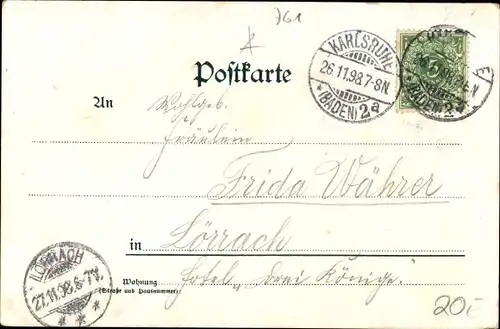 761
Postkarte
KARLSRUHE
26.11.98.7-8N.
*(BADEN)2a
An Wohlgeb.
Fräulein
Frida Währer
in Lörrach
Hotel „Drei Könige“.
Wohnung
(Straße und Hausnummer)
LÖRRACH
27.11.98.6-7V.
20€